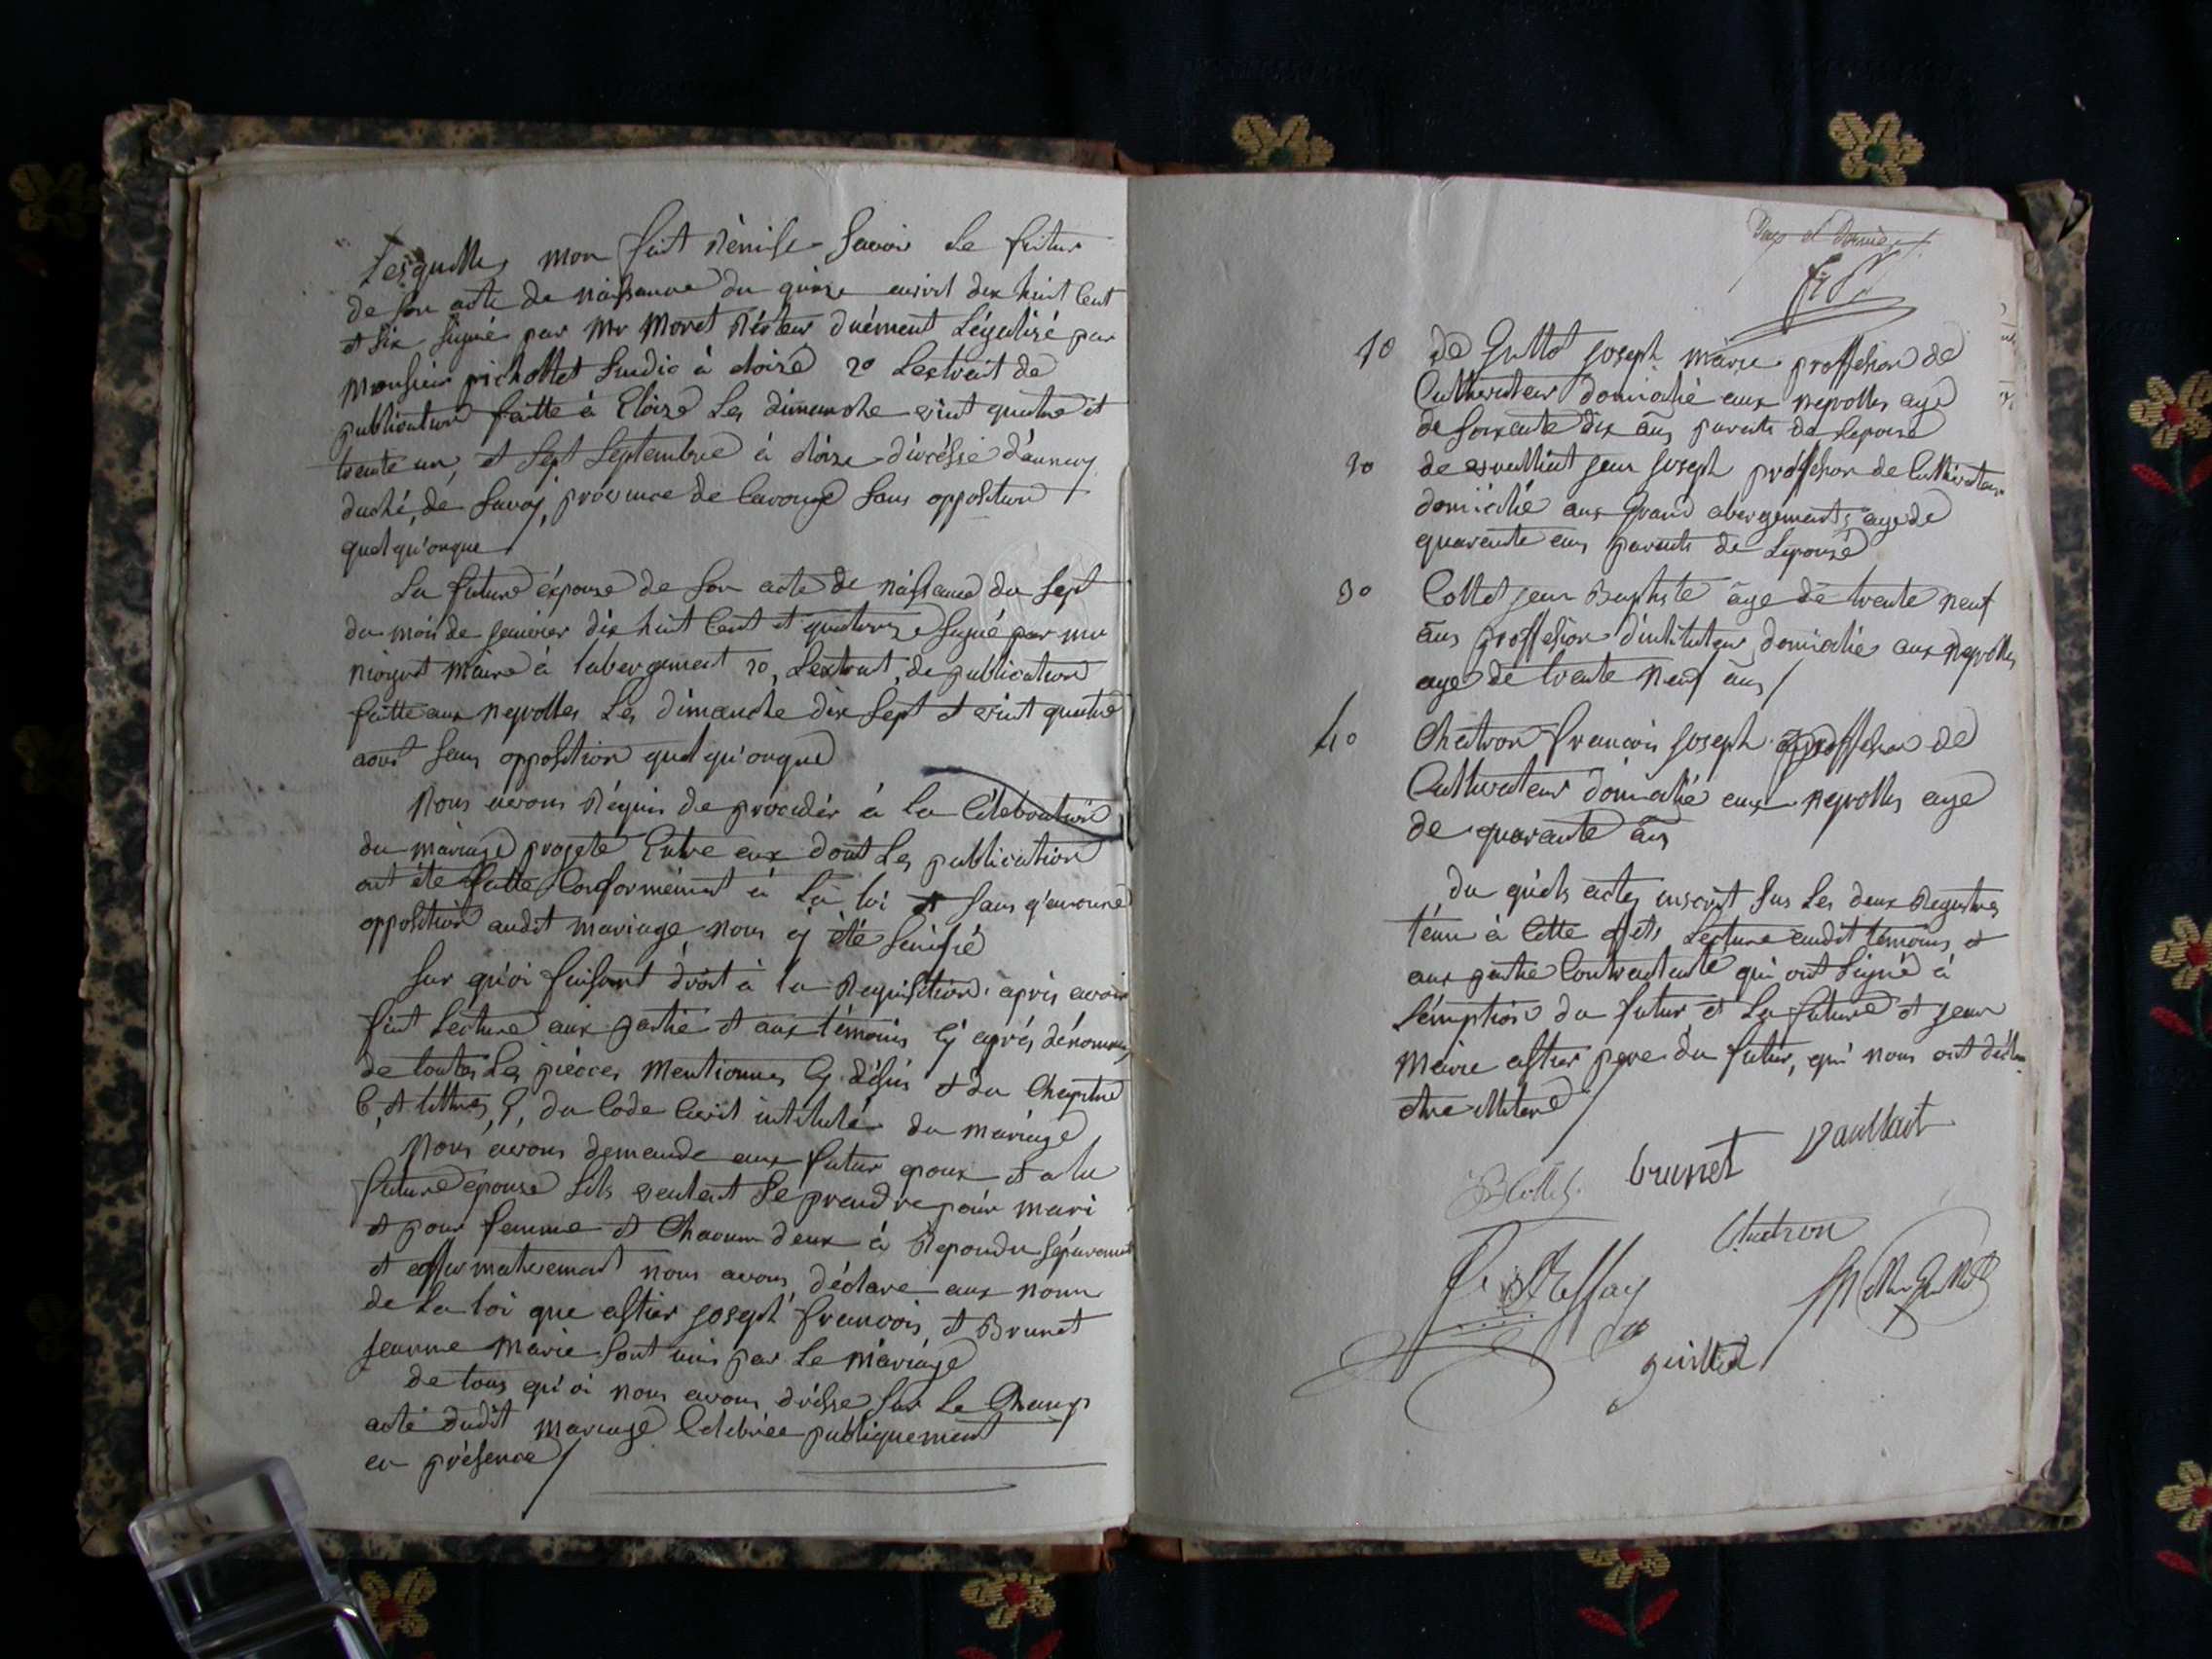 Lesquelles mon fait Rémise Savoir Le futur
de son acte de naissance du quinze dix huit Cent
et Six Signé par Mr Moret Récteur duément Légalisé par
Monsieur Sindic à eloise 2o Lextrait de
publication faitte à Eloise Les dimanche vint quatre et
trente un, et Sept Septembre à eloise d'annecy
duché, de Savoy, province de Carouge Sans opposition
quelqu'onque
La future épouse de Son acte de naissance du Sept
du mois de janvier dix huit Cent et quatorze Signé par mr
maire à labergement 2o, Lextrait, de publication
faitte aux neyrolles Les dimanche dix Sept et vint quatre
aout Sans opposition quelqu'onque
Nous avons Réquis de procedér à la Célébration
du mariage projeté Entre eux dont Les publication
ont été faitte Conformément à La loi et Sans q'aucune
opposition audit mariage nous y été Sinifié
Sur qu'oi faisant droit à la Requisition après avoir
fait Lecture aux partie et aux témoins Cy après dénommés
de toutes Les pièces Mentionnes Cy déssus et du Chapitre
6, et du Code Civil intitulé du mariage
Nous avons demande aux futur epoux et a la
future epouse Sils veulent Se prendre pour mari
et pour femme et Chacun deux à Repondu Séparement
et affirmativement nous avons déclare aux nom
de La loi que astier joseph francois et Brunet
jeanne Marie Sont unis par Le mariage
de tous qu'oi nous avons drésse Sur Le Champ
acte dudit mariage Célébrée publiquement
en présence
1o de joseph marie proffesion de
Cultivateur domicilié aux neyrolles age
de Soixante dix ans parents de Lepouse
2o de jean joseph proffesion de Cultivateur
domicilié aux Grand abergements age de
quarente ans parents de Lepouse
3o Collet jean Baptiste âge de trente neuf
ans proffesion d'intituteur domicilié aux neyrolles
age de trente neuf ans
4o Chatron francois joseph proffesion de
Cultivateur domicilié aux neyrolles age
de quarante ans
du quels actes inscrit Sus Les deux Registres
ténu à Cette effets Lecture audit témoins et
aux partie Contractante qui ont Signé à
Léxemption du futur et La future et jean
Marie astier pere du futur, qui nous ont déclaré
etre illitere
brunet
Chatron